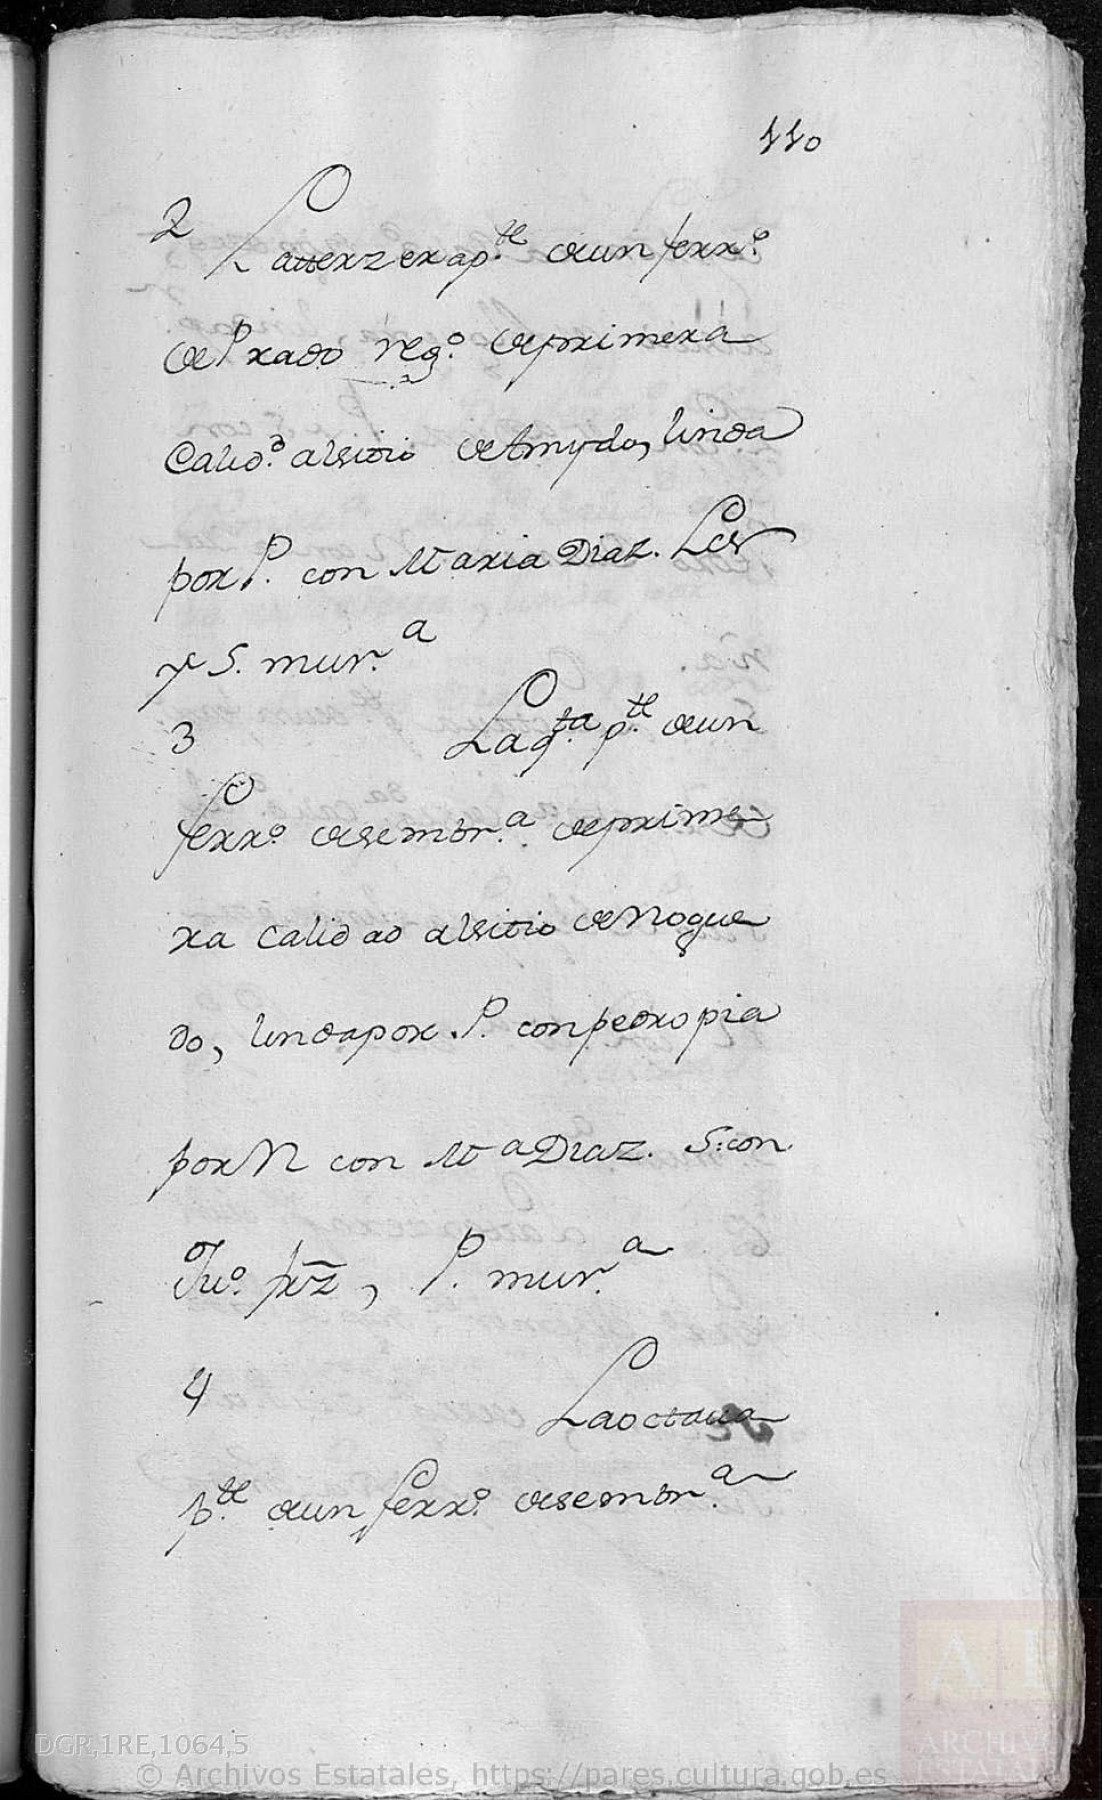 110
2 La terzera p.te de un ferr.o
de Prado reg.o de primera
Calid.d al sitio de Amydo, linda
por P. con Maria Diaz. L con
y S. mur.a
3 La q.ta p.te de un
ferr.o de sembr.a de prime
ra calidad al sitio de Nogue
do, linda por P. con pedro pia
por N con M.a Diaz. S: con
Ju.o prz, P. mur.a
4 La octava
p.te de un ferr.o de sembr.a
DGR,1RE,1064,5
© Archivos Estatales, https://pares.cultura.gob.es